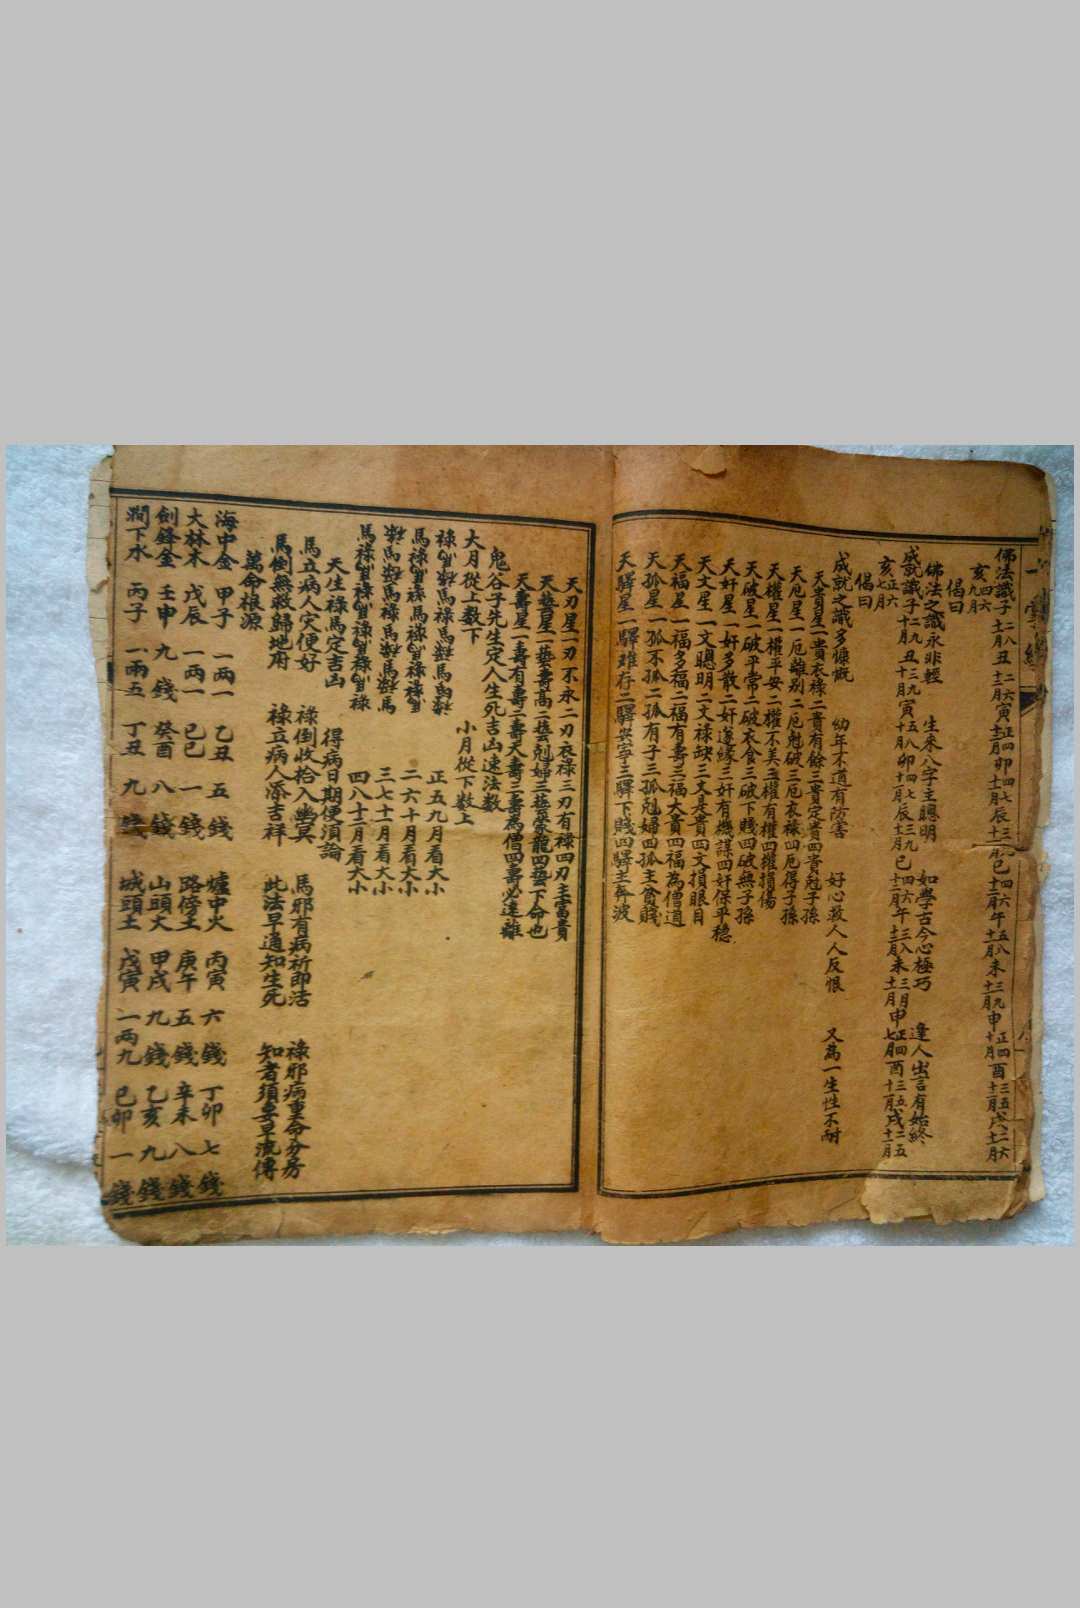 佛法識子二八十一月丑二六十二月寅正四十二月卯四七十一月辰三九十二月巳四六十一月午五八十二月未三九十一月申正四十月酉三五十二月戌二六十二月
亥四六九月
偈曰
佛法之識永非輕 生來八字主聰明 如學古今心極巧 逢人出言有始終
成就識子二九十月丑三九十月寅五八十一月卯四七十一月辰三九十二月巳四六十二月午三八十二月未三月十一月申正四七月酉三五十二月戌二五十一月
亥正六七月
偈曰
成就之識多慷慨 幼年不道有防害 好心救人人反恨 又為一生性不耐
天貴星一貴衣祿二貴有餘三貴定貴四貴尅子孫
天厄星一厄離别二厄尅破三厄衣祿四厄得子孫
天權星一權平安二權不美三權有權四權損傷
天破星一破平常二破衣食三破下賤四破無子孫
天奸星一奸多散二奸遂緣三奸有機謀四奸保平穩
天文星一文聰明二文祿缺三文是貴四文損眼目
天福星一福多福二福有壽三福大貴四福為僧道
天孤星一孤不孤二孤有子三孤尅婦四孤主貧賤
天驛星一驛難存二驛安寧三驛下賤四驛主奔波
天刃星一刃不永二刃衣祿三刃有祿四刃主富貴
天藝星一藝壽高二藝尅婦三藝蒙寵四藝下命也
天壽星一壽有壽二壽夭壽三壽為僧四壽必遠離
鬼谷子先生定人生死吉凶速法数
大月從上数下 小月從下数上
正五九月看大小
二六十月看大小
三七十一月看大小
四八十二月看大小
天生祿馬定吉凶 得病日期便須論
馬立病人灾便好 祿倒收拾入幽冥 馬邪有病祈即活 祿邪病重命分易
馬倒無救歸地府 祿立病人添吉祥 此法早通知生死 知者須要早流傳
萬命根源
海中金 甲子 一兩一 乙丑 五錢 爐中火 丙寅 六錢 丁卯 七錢
大林木 戊辰 一兩一 己巳 一錢 路傍土 庚午 五錢 辛未 八錢
劍鋒金 壬申 九錢 癸酉 八錢 山頭火 甲戌 九錢 乙亥 九錢
澗下水 丙子 一兩五 丁丑 九錢 城頭土 戊寅 一兩九 己卯 一錢